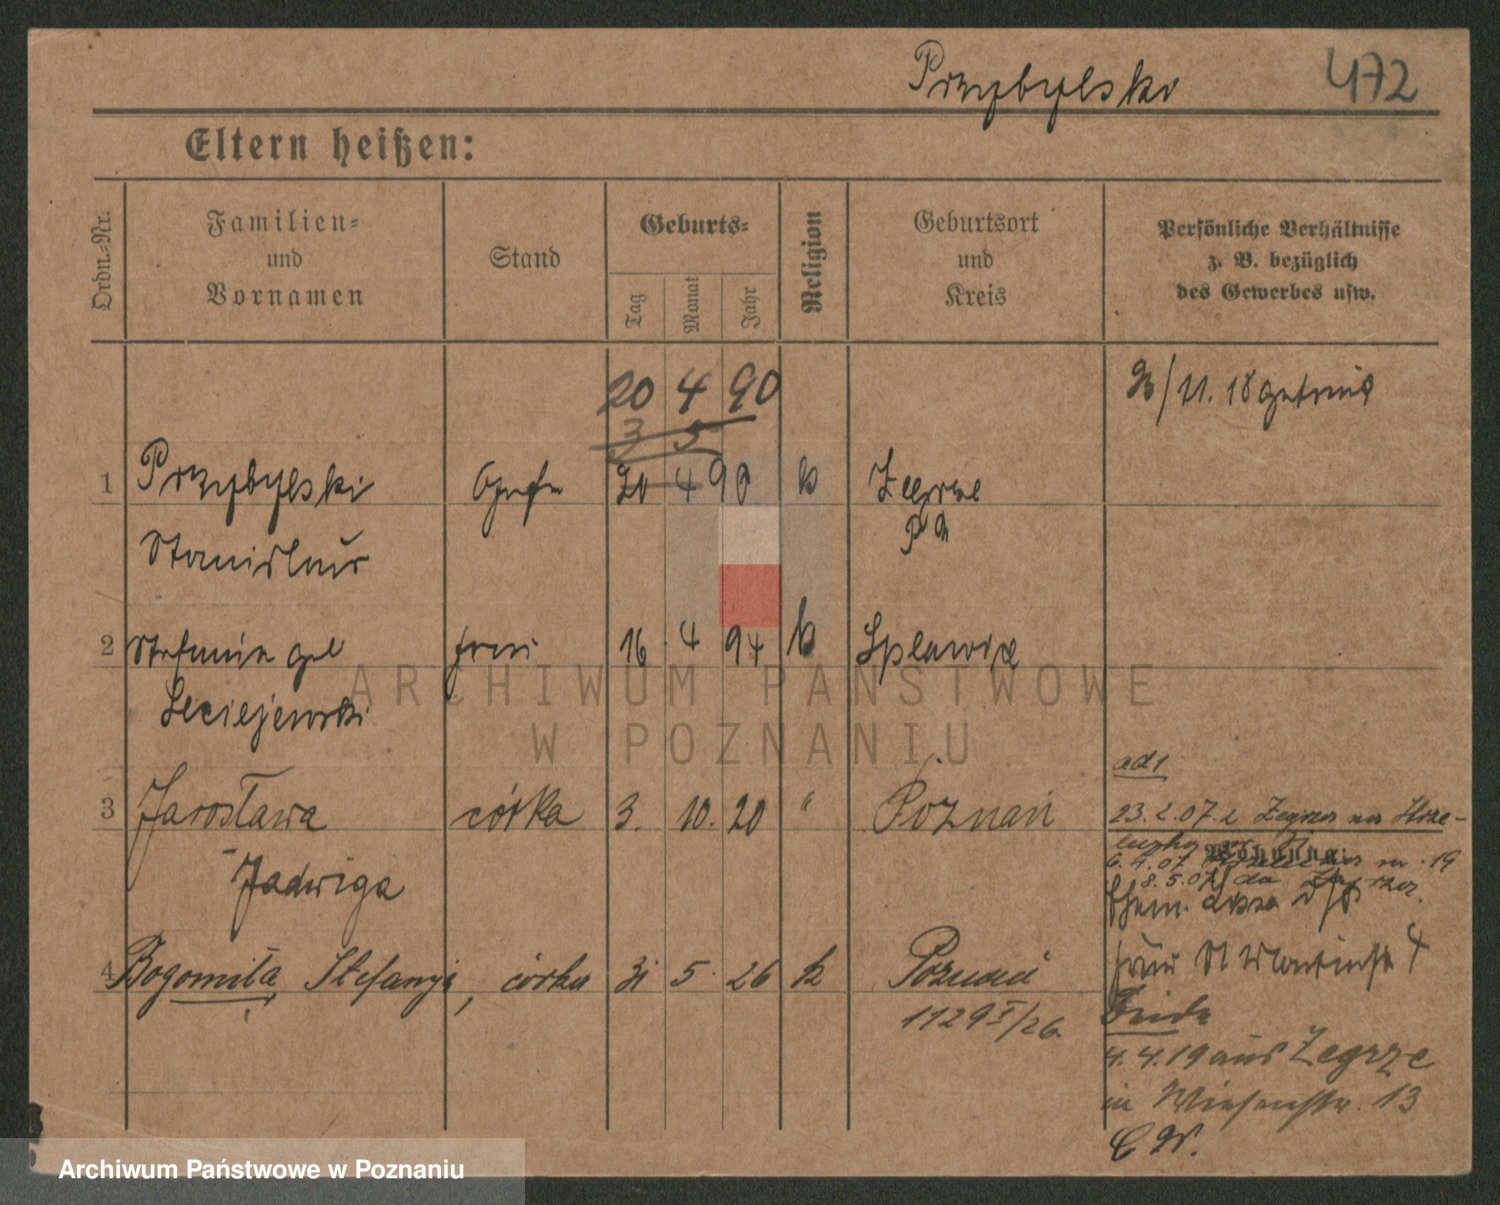 Przybylski 472
Eltern heißen:
Ordn.-Nr.
Familien-
und
Vornamen
Stand
Geburts-
Tag
Monat
Jahr
Religion
Geburtsort
und
Kreis
Persönliche Verhältnisse
z. B. bezüglich
des Gewerbes usw.
20 4 90
3 5
/11. 18 getraut
1 Przybylski 20 4 90 k Zegrze
Stanislaus
2 Stefania geb frau 16 4 94 k Splawie
Leciejewski
ad 1
3 Jarosława córka 3. 10. 20 " Poznań
23.2.07. Zegrze
Wohnung:
6.4.07 19
- Jadwiga
8.5.07
4 Bogomiła Stefanja, córka 31 5. 26 k Poznań
1129 I/26.
beide
4.4.19 aus Zegrze
in Wiesenstr. 13
ARCHIWUM PAŃSTWOWE
W POZNANIU
Archiwum Państwowe w Poznaniu